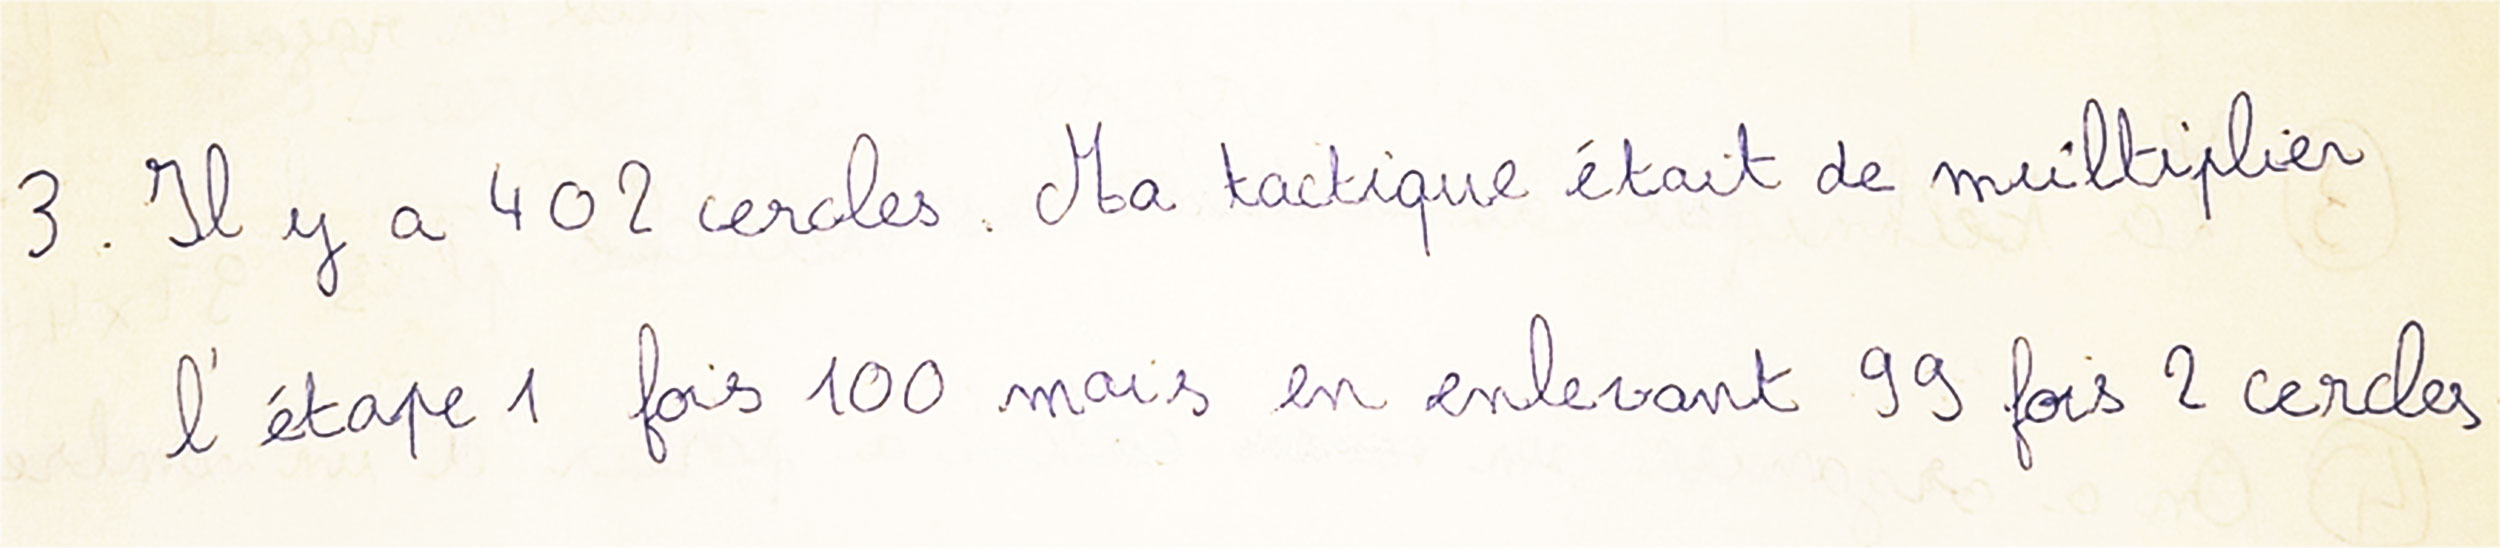 3. Il y a 402 cercles. Ma tactique était de multiplier
l'étape 1 fois 100 mais en enlevant 99 fois 2 cercles